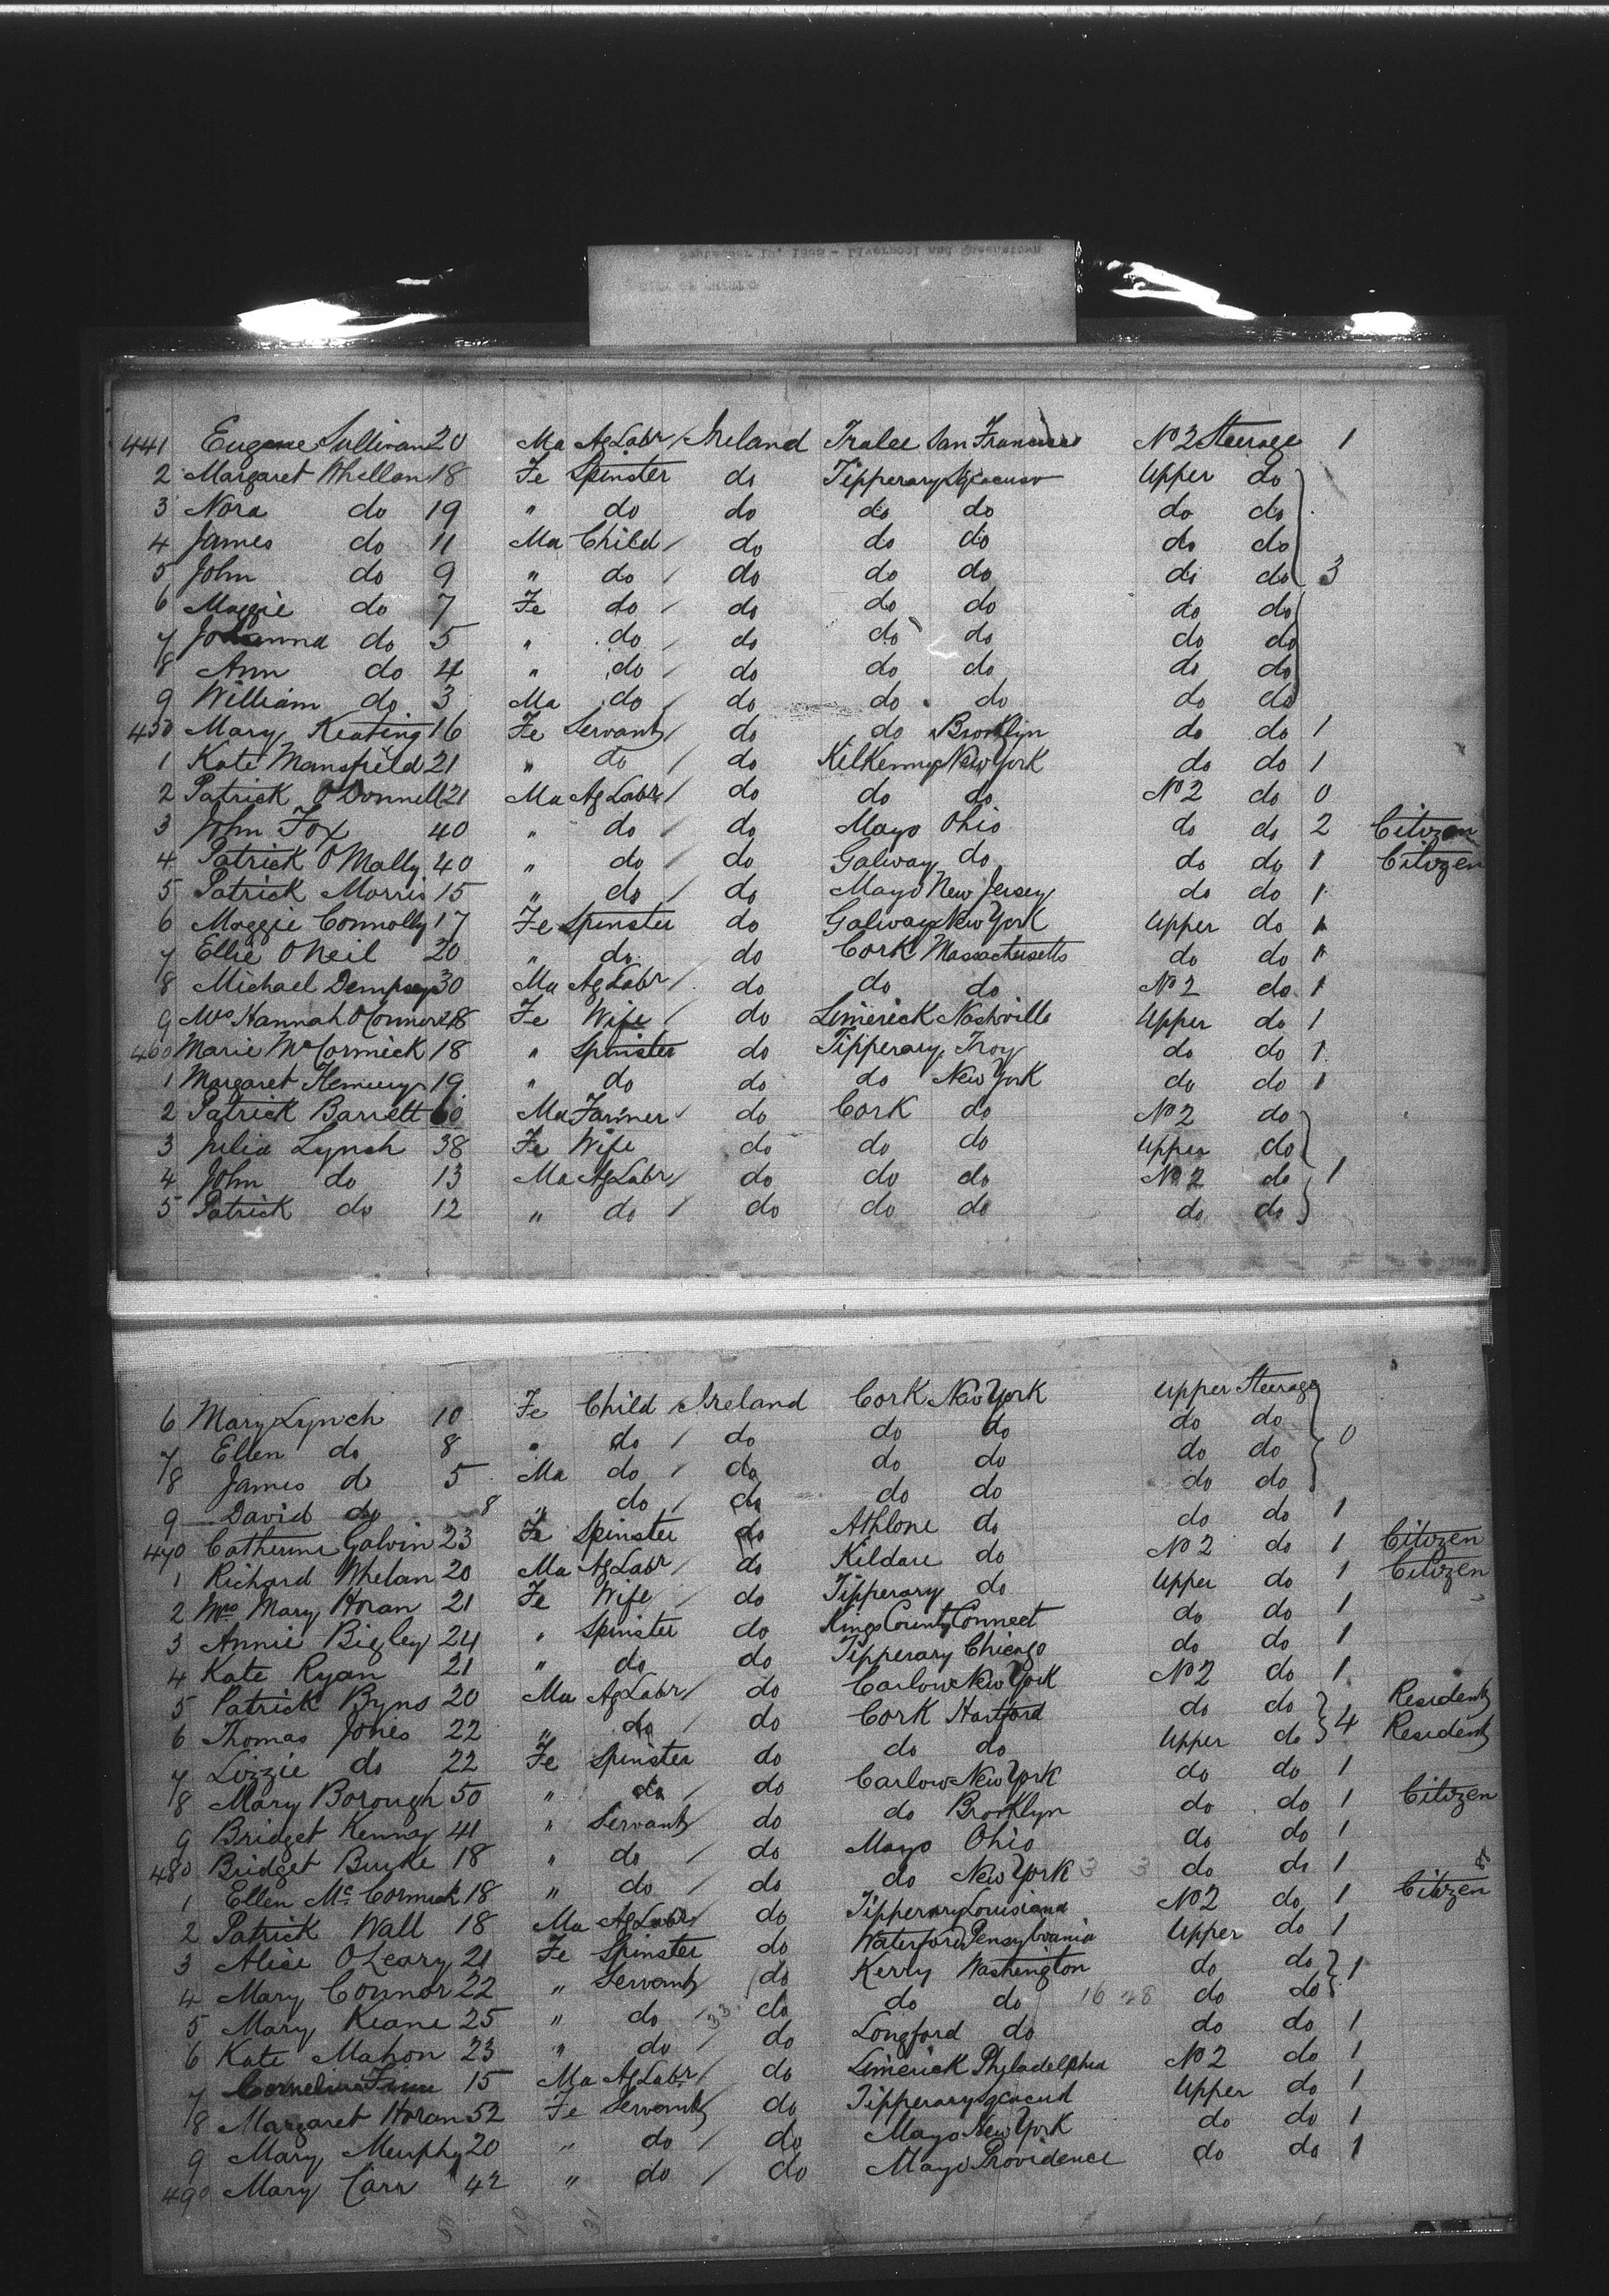 441 Eugene Sullivan 20 Ma Ag Labr / Ireland Tralee San Francisco No 2 Steerage 1
2 Margaret Whellan 18 Fe Spinster do Tipperary Upper do
3 Nora do 19 " do do do do do do
4 James do 11 Ma Child / do do do do do
5 John do 9 " do / do do do do do 3
6 Maggie do 7 Fe do / do do do do do
7 Johanna do 5 " do / do do do do do
8 Ann do 4 " do / do do do do do
9 William do 3 Ma do / do do do do do
450 Mary Keating 16 Fe Servant / do do Brooklyn do do 1
1 Kate Mansfield 21 " do / do Kilkenny New York do do 1
2 Patrick O'Donnell 21 Ma Ag Labr / do do do No 2 do 0
3 John Fox 40 " do / do Mayo Ohio do do 2 Citizen
4 Patrick O'Mally 40 " do / do Galway do do do 1 Citizen
5 Patrick Morris 15 " do / do Mayo New Jersey do do 1
6 Maggie Connolly 17 Fe Spinster do Galway New York Upper do 1
7 Ellie O'Neil 20 " do do Cork Massachusetts do do 1
8 Michael Dempsey 30 Ma Ag Labr / do do do No 2 do 1
9 Mrs Hannah O'Connor 28 Fe Wife / do Limerick Nashville Upper do 1
460 Marie McCormick 18 " Spinster do Tipperary Troy do do 1
1 Margaret 19 " do do do New York do do 1
2 Patrick Barrett 60 Ma Farmer / do Cork do No 2 do
3 Julia Lynch 38 Fe Wife do do do Upper do
4 John do 13 Ma Ag Labr / do do do No 2 do 1
5 Patrick do 12 " do / do do do do do
6 Mary Lynch 10 Fe Child / Ireland Cork New York Upper Steerage
7 Ellen do 8 " do / do do do do do 0
8 James do 5 Ma do / do do do do do
9 David do 8 " do / do do do do do
470 Catherine Galvin 23 Fe Spinster do Athlone do do do 1
1 Richard Whelan 20 Ma Ag Labr / do Kildare do No 2 do 1 Citizen
2 Mrs Mary Horan 21 Fe Wife / do Tipperary do Upper do 1 Citizen
3 Annie Bigley 24 " Spinster do Kings County Connect do do 1
4 Kate Ryan 21 " do do Tipperary Chicago do do 1
5 Patrick Byns 20 Ma Ag Labr / do Carlow New York No 2 do 1
6 Thomas Jones 22 " do / do Cork Hartford do do 4 Resident
7 Lizzie do 22 Fe Spinster do do do Upper do Resident
8 Mary Borough 50 " do / do Carlow New York do do 1
9 Bridget Kennay 41 " Servant do do Brooklyn do do 1 Citizen
480 Bridget Burke 18 " do / do Mayo Ohio do do 1
1 Ellen McCormick 18 " do / do do New York 3 3 do do 1
2 Patrick Wall 18 Ma Ag Labr / do Tipperary Louisiana No 2 do 1 Citizen
3 Alice O'Leary 21 Fe Spinster do Waterford Pensylvania Upper do 1
4 Mary Connor 22 " Servant / do Kerry Washington do do 1
5 Mary Keane 25 " do / 33 do do do 16 28 do do
6 Kate Mahon 23 " do / do Longford do do do 1
7 Cornelius 15 Ma Ag Labr / do Limerick Philadelphia No 2 do 1
8 Margaret Horan 52 Fe Servant / do Tipperary Upper do 1
9 Mary Murphy 20 " do / do Mayo New York do do 1
490 Mary Carr 42 " do / do Mayo Providence do do 1